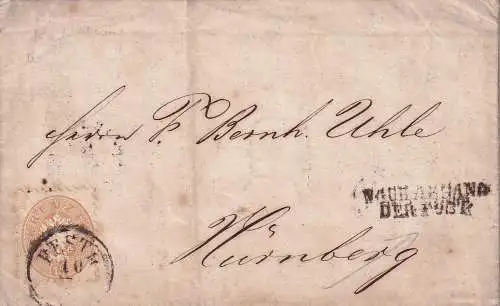 Herrn F. Bernh. Uhle
NACH ABGANG
DER POST
Nürnberg
PESTH
10